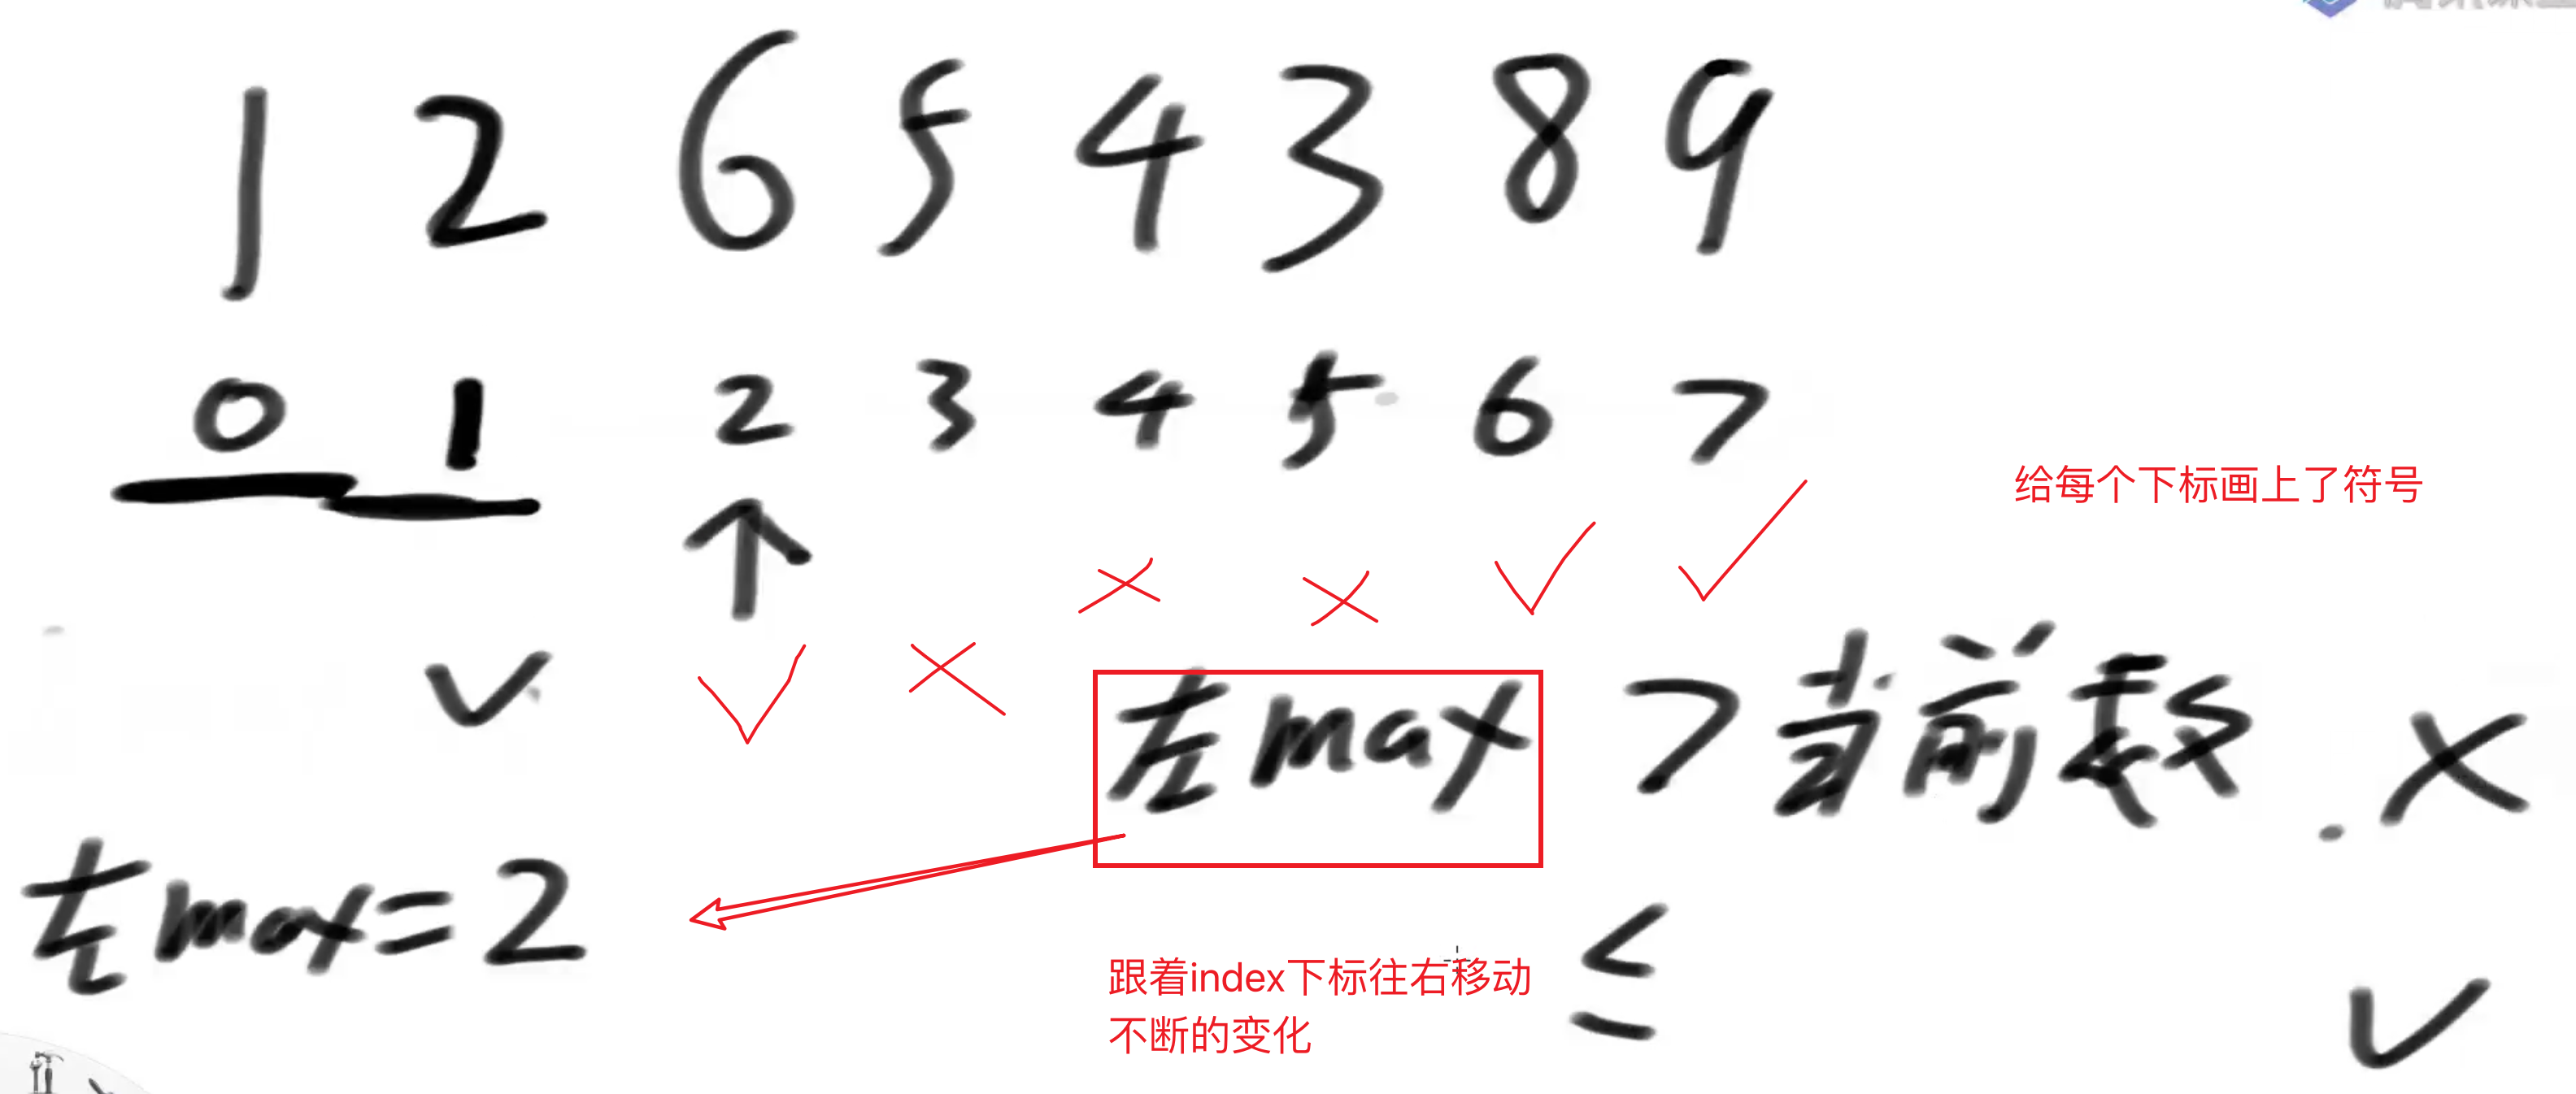 1 2 6 5 4 3 8 9
0 1 2 3 4 5 6 7
给每个下标画上了符号
↑
× × ✓ ✓
✓ ✓ ×
左max > 当前数. ×
左max=2
≤ ✓
跟着index下标往右移动
不断的变化